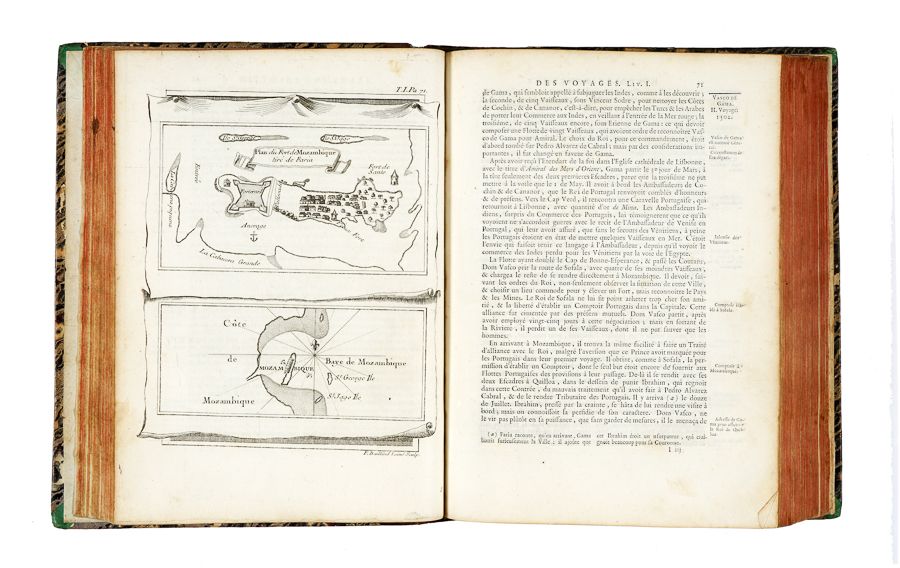 T. I. Pa. 71.
Plan du Fort de Mozambique
tiré de Faria
Fort de
Ancrage
La Cabacera Grande
Côte
de
Mozambique
Baye de Mozambique
MOZAMBIQUE
St. George Ile
St. Jago Ile
DES VOYAGES. Liv. I. 71
de Gama, qui sembloit appellé à subjuguer les Indes, comme à les découvrir;
la seconde, de cinq Vaisseaux, sous Vincent Sodre, pour nettoyer les Côtes
de Cochin, & de Cananor, c'est-à-dire, pour empêcher les Turcs & les Arabes
de porter leur Commerce aux Indes, en veillant à l'entrée de la Mer rouge; la
troisiéme, de cinq Vaisseaux encore, sous Etienne de Gama: ce qui devoit
composer une Flotte de vingt Vaisseaux, qui avoient ordre de reconnoître Vas-
co de Gama pour Amiral. Le choix du Roi, pour ce commandement, étoit
d'abord tombé sur Pedro Alvarez de Cabral; mais par des considérations im-
portantes, il fut changé en faveur de Gama.
Après avoir reçû l'Etendart de la foi dans l'Eglise cathédrale de Lisbonne,
avec le titre d'Amiral des Mers d'Orient, Gama partit le jour de Mars, à
la tête seulement des deux premieres Escadres, parce que la troisiéme ne put
mettre à la voile que le 1 de May. Il avoit à bord les Ambassadeurs de Co-
chin & de Cananor, que le Roi de Portugal renvoyoit comblés d'honneurs
& de présens. Vers le Cap Verd, il rencontra une Caravelle Portugaise, qui
retournoit à Lisbonne, avec quantité d'or de Mina. Les Ambassadeurs In-
diens, surpris du Commerce des Portugais, lui témoignerent que ce qu'ils
voyoient ne s'accordoit guerres avec le récit de l'Ambassadeur de Venise en
Portugal, qui leur avoit assuré, que sans le secours des Vénitiens, à peine
les Portugais étoient en état de mettre quelques Vaisseaux en Mer. C'étoit
l'envie qui faisoit tenir ce langage à l'Ambassadeur, depuis qu'il voyoit le
commerce des Indes perdu pour les Vénitiens par la voie de l'Egypte.
La Flotte ayant doublé le Cap de Bonne-Esperance, & passé les Courans,
Dom Vasco prit la route de Sofala, avec quatre de ses moindres Vaisseaux,
& chargea le reste de se rendre directement à Mozambique. Il devoit, sui-
vant les ordres du Roi, non-seulement observer la situation de cette Ville,
& choisir un lieu commode pour y élever un Fort, mais reconnoître le Pays
& les Mines. Le Roi de Sofala ne lui fit point acheter trop cher son ami-
tié, & la liberté d'établir un Comptoir Portugais dans la Capitale. Cette
alliance fut cimentée par des présens mutuels. Dom Vasco partit, après
avoir employé vingt-cinq jours à cette négociation; mais en sortant de
la Riviere, il perdit un de ses Vaisseaux, dont il ne put sauver que les
hommes.
En arrivant à Mozambique, il trouva la même facilité à faire un Traité
d'alliance avec le Roi, malgré l'aversion que ce Prince avoit marquée pour
les Portugais dans leur premier voyage. Il obtint, comme à Sofala, la per-
mission d'établir un Comptoir, dont le seul but étoit encore de fournir aux
Flottes Portugaises des provisions à leur passage. De-là il se rendit avec ses
deux Escadres à Quilloa, dans le dessein de punir Ibrahim, qui regnoit
dans cette Contrée, du mauvais traitement qu'il avoit fait à Pedro Alvarez
Cabral, & de le rendre Tributaire des Portugais. Il y arriva (a) le douze
de Juillet. Ibrahim, pressé par la crainte, se hâta de lui rendre une visite à
bord; mais on connoissoit la perfidie de son caractere. Dom Vasco, ne
le vit pas plûtôt en sa puissance, que sans garder de mesures, il le menaça de
(a) Faria raconte, qu'en arrivant, Gama
Ibrahim étoit un usurpateur, qui
furieusement la Ville: il ajoute que
beaucoup pour la Couronne.
I iij
VASCO DE
GAMA.
II. Voyage
1502.